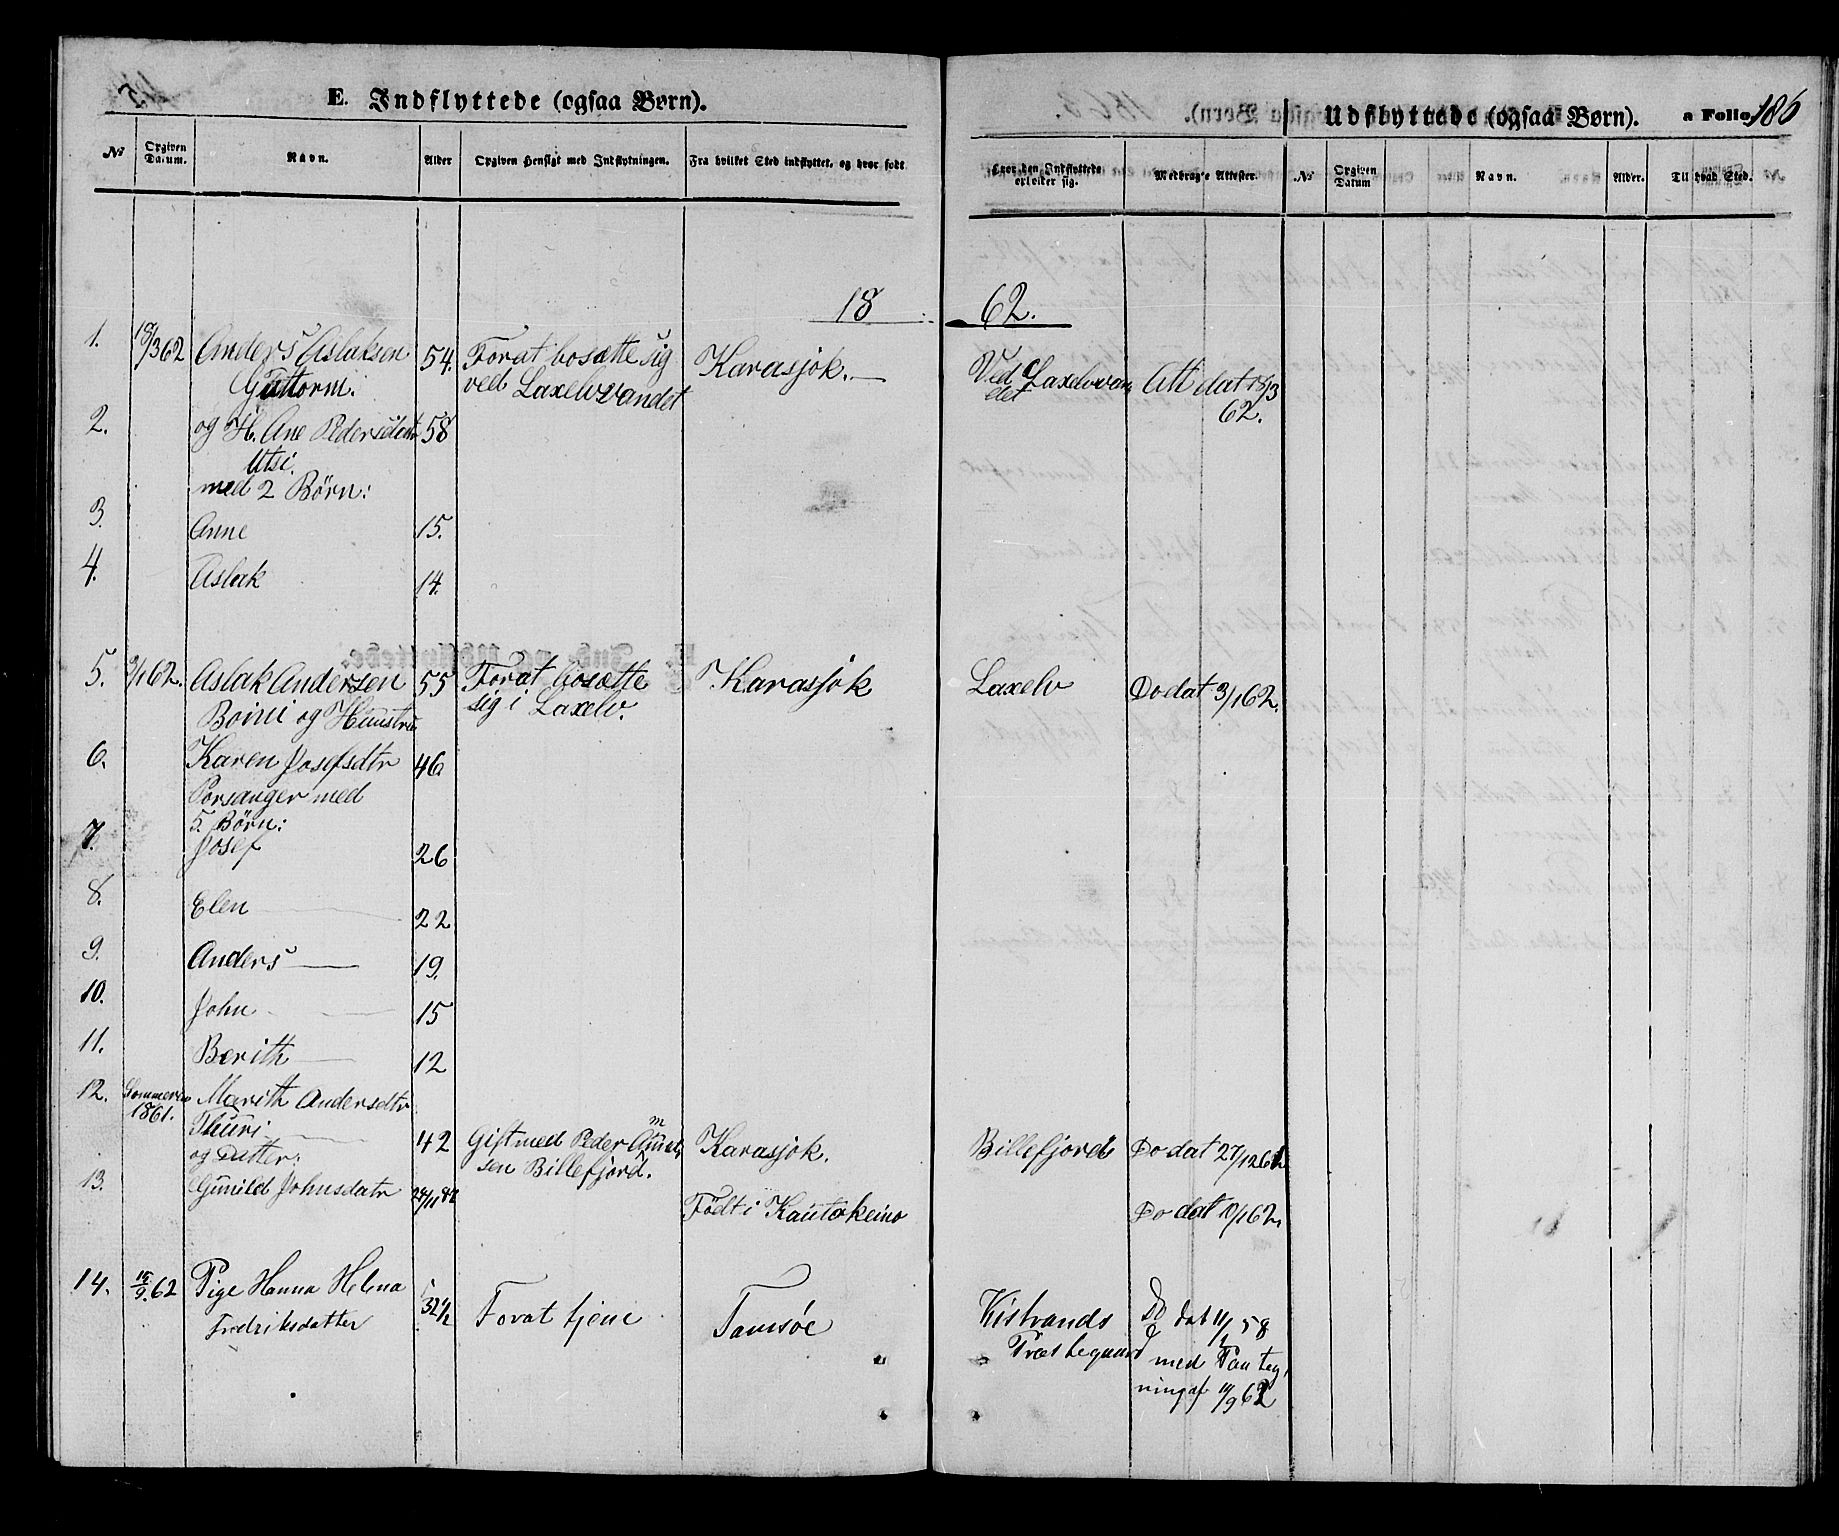 E. Indflyttede (ogsaa Børn).
Udflyttede (ogsaa Børn).
a Folio 186
No
Opgiven Datum.
Navn.
Alder
Opgiven Hensigt med Indflytningen.
Fra hvilket Sted indflyttet, og hvor født
Hvor den Indflyttede opholder sig.
Medbragte Attester.
No
Opgiven Datum
Navn.
Alder.
Til hvad Sted.
1862.
1. 18/3 62 Anders Aslaksen 54. For at bosætte sig Karasjok. Ved Laxelvvan Att dat 18/3
Guttorm. ved Laxelvvandet det 62.
2. og H. Ane Pedersdatr 58
Utsi
med 2 Börn:
3. Anne 15.
4. Aslak 14.
5. 3/1 62. Aslak Andersen 55 For at bosætte Karasjok Laxelv Do dat 3/1 62.
Boini og Hustru sig i Laxelv.
6. Karen Josefsdtr 46
Porsanger med
5. Börn:
7. Josef 26
8. Elen 22
9. Anders 19.
10. John 15
11. Berith 12
12. Sommeren Marith Andersdtr
1861. Thuri 42 Gift med Peder Amund Karasjok. Billefjord Do dat 27/12 61
og Datter: sen Billefjord.
13. Gunild Johnsdatr 24/11 47 Födt i Kautokeino Do dat 10/1 62
14. 15/9 62 Pige Hanna Helena 32 1/2 For at tjene Tamsøe Kistrands Do dat 11/1 58
Fredriksdatter Præstegaard med Paateg
ning af 11/9 62